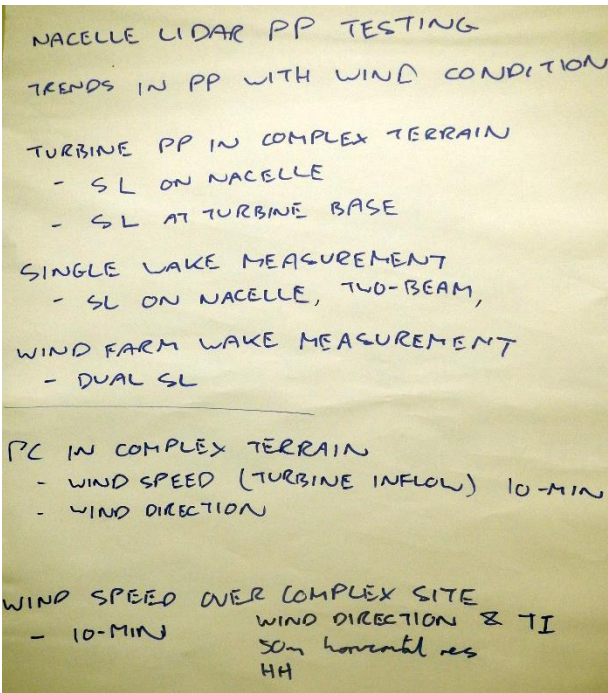 NACELLE LIDAR PP TESTING
TRENDS IN PP WITH WIND CONDITION
TURBINE PP IN COMPLEX TERRAIN
- SL ON NACELLE
- SL AT TURBINE BASE
SINGLE WAKE MEASUREMENT
- SL ON NACELLE, TWO-BEAM,
WIND FARM WAKE MEASUREMENT
- DUAL SL
PC IN COMPLEX TERRAIN
- WIND SPEED (TURBINE INFLOW) 10-MIN
- WIND DIRECTION
WIND SPEED OVER COMPLEX SITE
- 10-MIN WIND DIRECTION & TI
50m horizontal res
HH